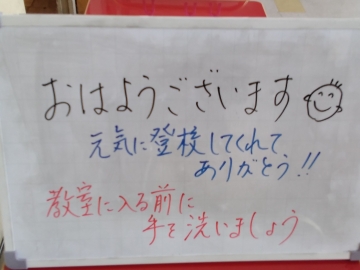 おはようございます
元気に登校してくれて
ありがとう!!
教室に入る前に
手を洗いましょう